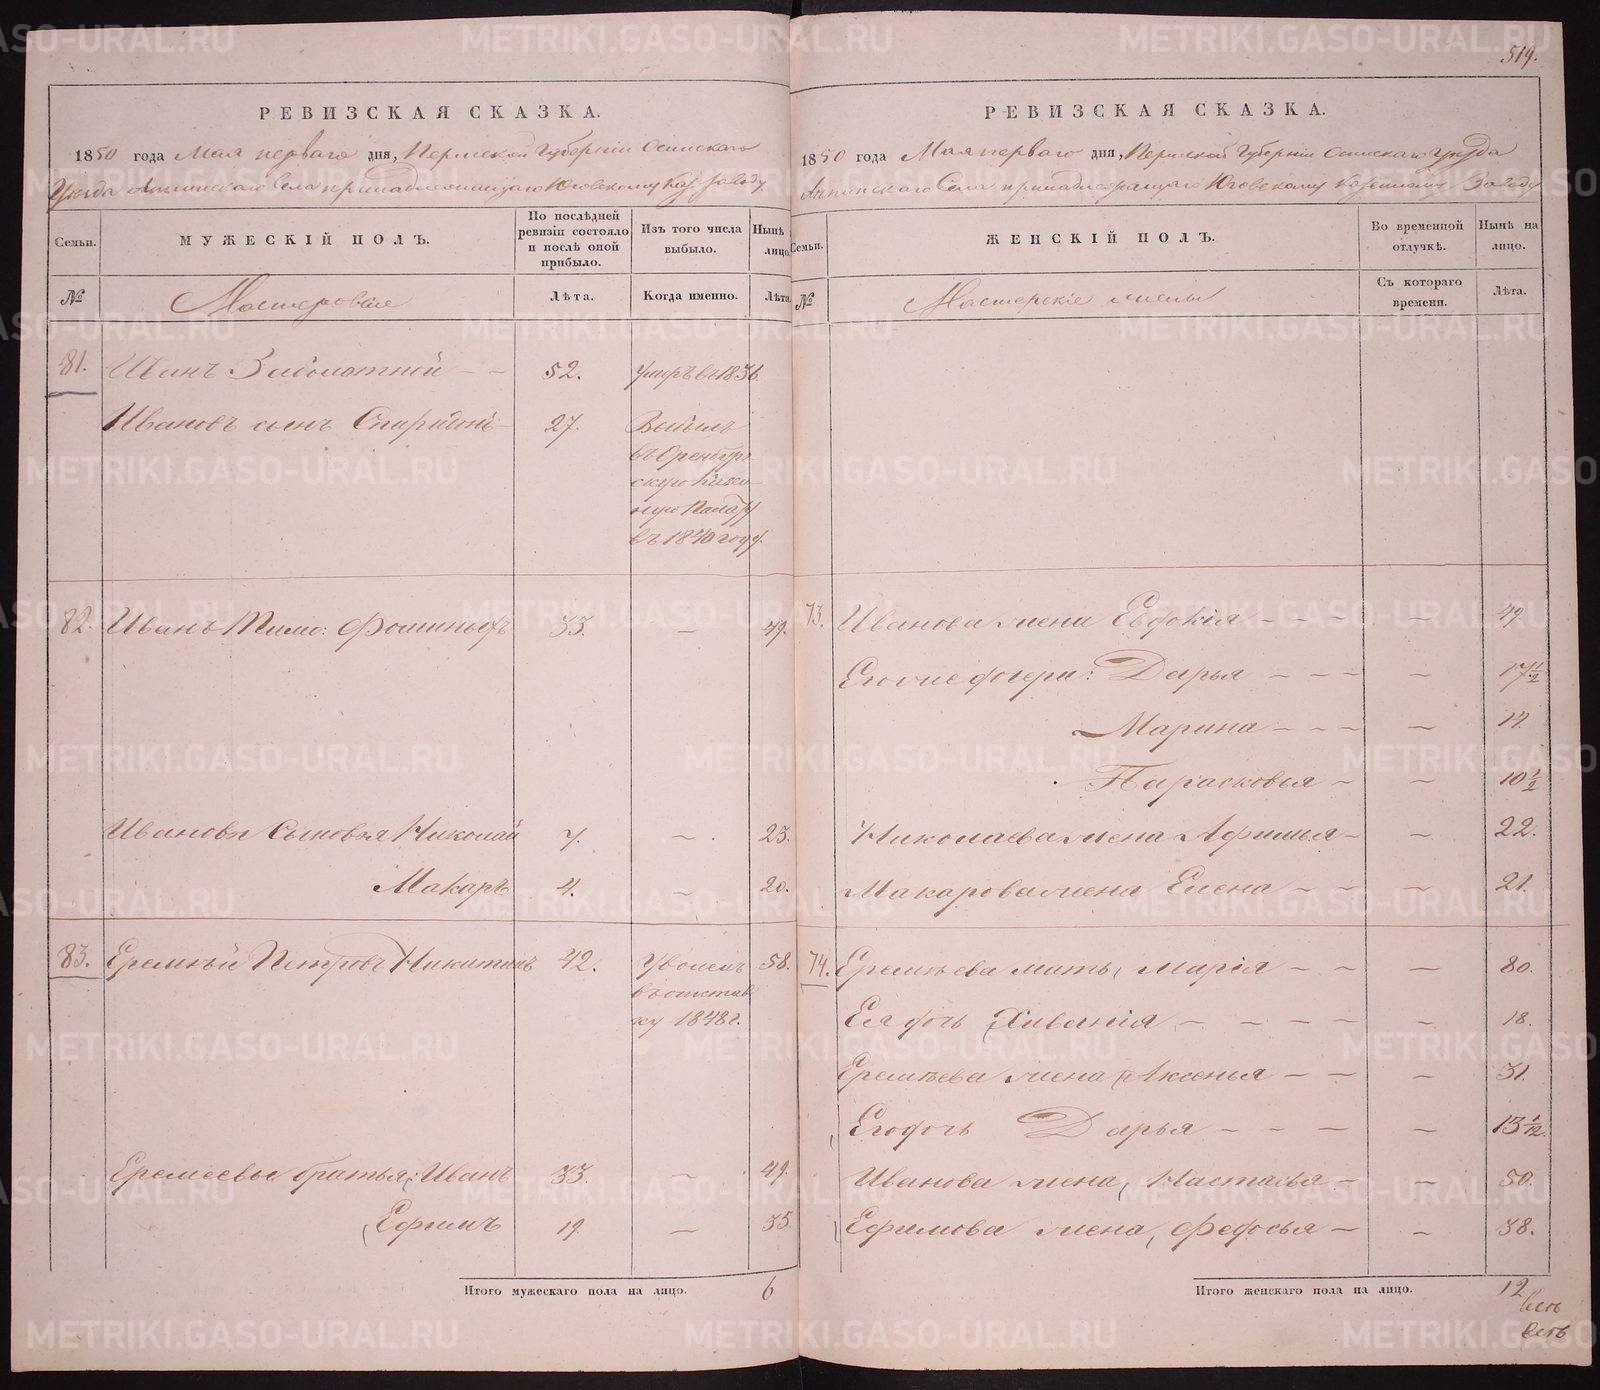 519.
РЕВИЗСКАЯ СКАЗКА.
1850 года Мая перваго дня, Пермской Губерніи Осинскаго
Уѣзда Аннинскаго Села принадлежащаго Юговскому Каз. заводу
Семьи.
МУЖЕСКІЙ ПОЛЪ.
По послѣдней ревизіи состояло и послѣ оной прибыло.
Изъ того числа выбыло.
Нынѣ лицо.
№
Мастеровые
Лѣта.
Когда именно.
Лѣта.
81. Иванъ Заболотной 52. умеръ въ 1836
Ивановъ сынъ Спиридонъ 27. Выбылъ
въ Оренбург
скую Казен
ную Палату
въ 1840 году.
82. Иванъ Тимо: Фоминыхъ 33. — 49.
Ивановы Сыновья Николай 7. — 23.
Макаръ 4. — 20.
83. Еремѣй Петровъ Никитинъ 42. Уволенъ 58.
въ отстав
ку 1848 г.
Еремеевы братья, Иванъ 33. — 49.
Ефимъ 19. — 35.
Итого мужескаго пола на лицо. 6
РЕВИЗСКАЯ СКАЗКА.
1850 года Мая перваго дня, Пермской Губерніи Осинскаго Уѣзда
Аннинскаго Села принадлежащаго Юговскому Казенному Заводу
Семьи.
ЖЕНСКІЙ ПОЛЪ.
Во временной отлучкѣ.
Нынѣ на лицо.
№
Мастерскіе жены
Съ котораго времени.
Лѣта.
73. Иванова жена Евдокія — 49
Его же дочери: Дарья — 17 1/2
Марина — 14.
Парасковья — 10 1/2
Николаева жена Афимья — 22.
Макарова жена Елена — 21.
74. Еремѣева мать, Марія — 80.
Ея дочь, Хивонія — 18.
Еремѣева жена, Аксенья — 31.
Его дочь Дарья — 13 1/12.
Иванова жена, Настасья — 50.
Ефимова жена, Федосья — 38.
Итого женскаго пола на лицо. 12
METRIKI.GASO-URAL.RU